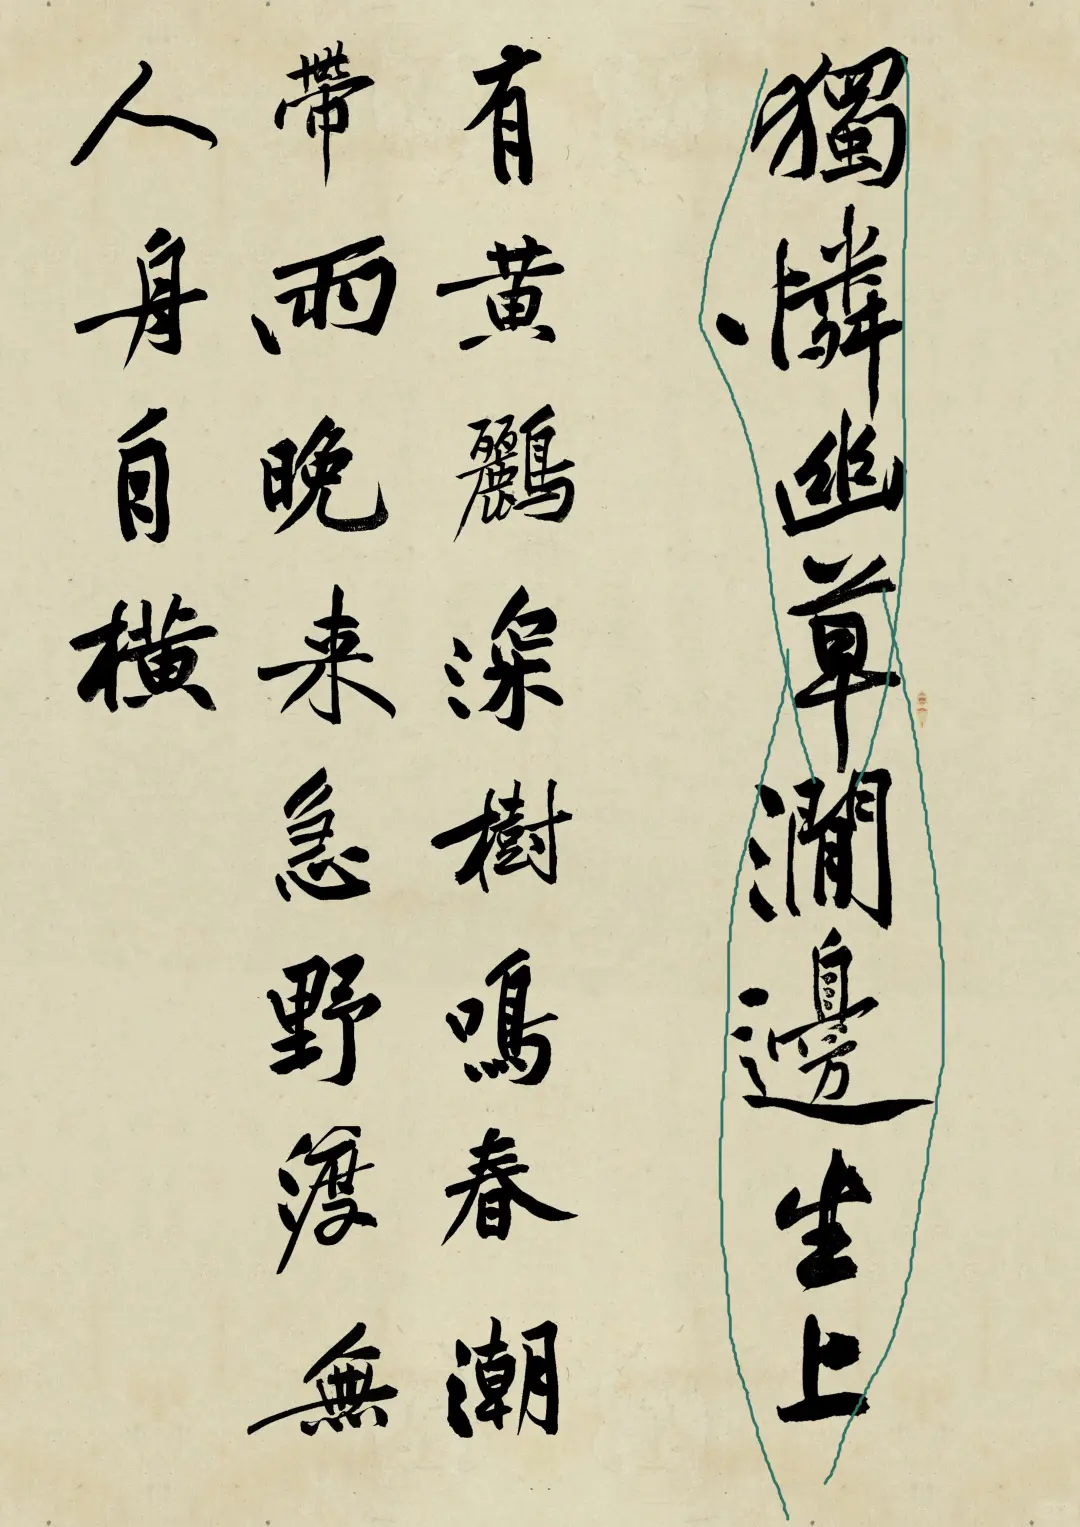 獨憐幽草澗邊生上
有黄鸝深樹鳴春潮
帶雨晚来急野渡無
人身自橫